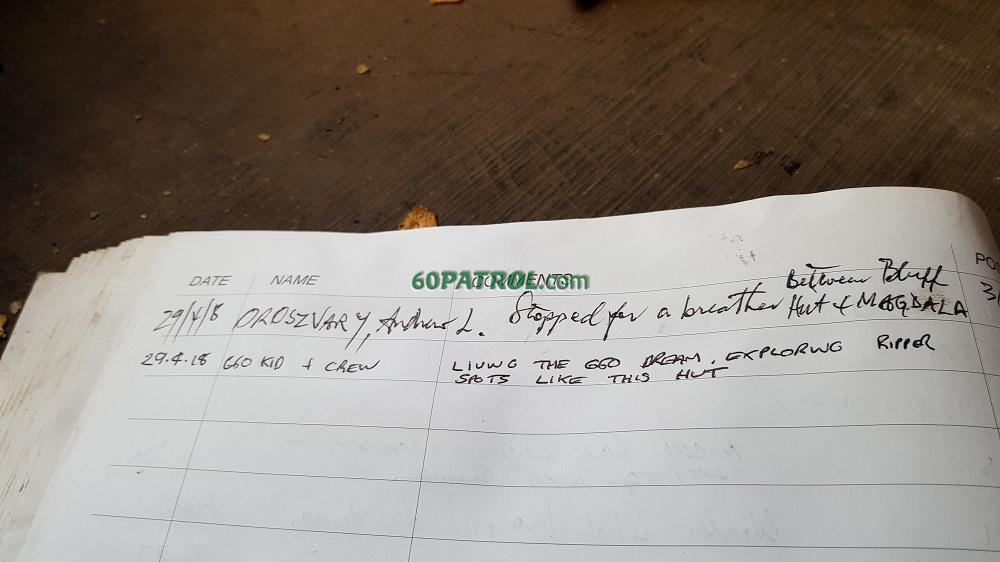 60PATROL.com
DATE NAME COMMENTS PO
29/4/18 OROSZVARY, Andrew L. Stopped for a breather Between Bluff
Hut & MAGDALA
29.4.18 GGO KID + CREW LIVING THE GGO DREAM. EXPLORING RIPPER
SPOTS LIKE THIS HUT